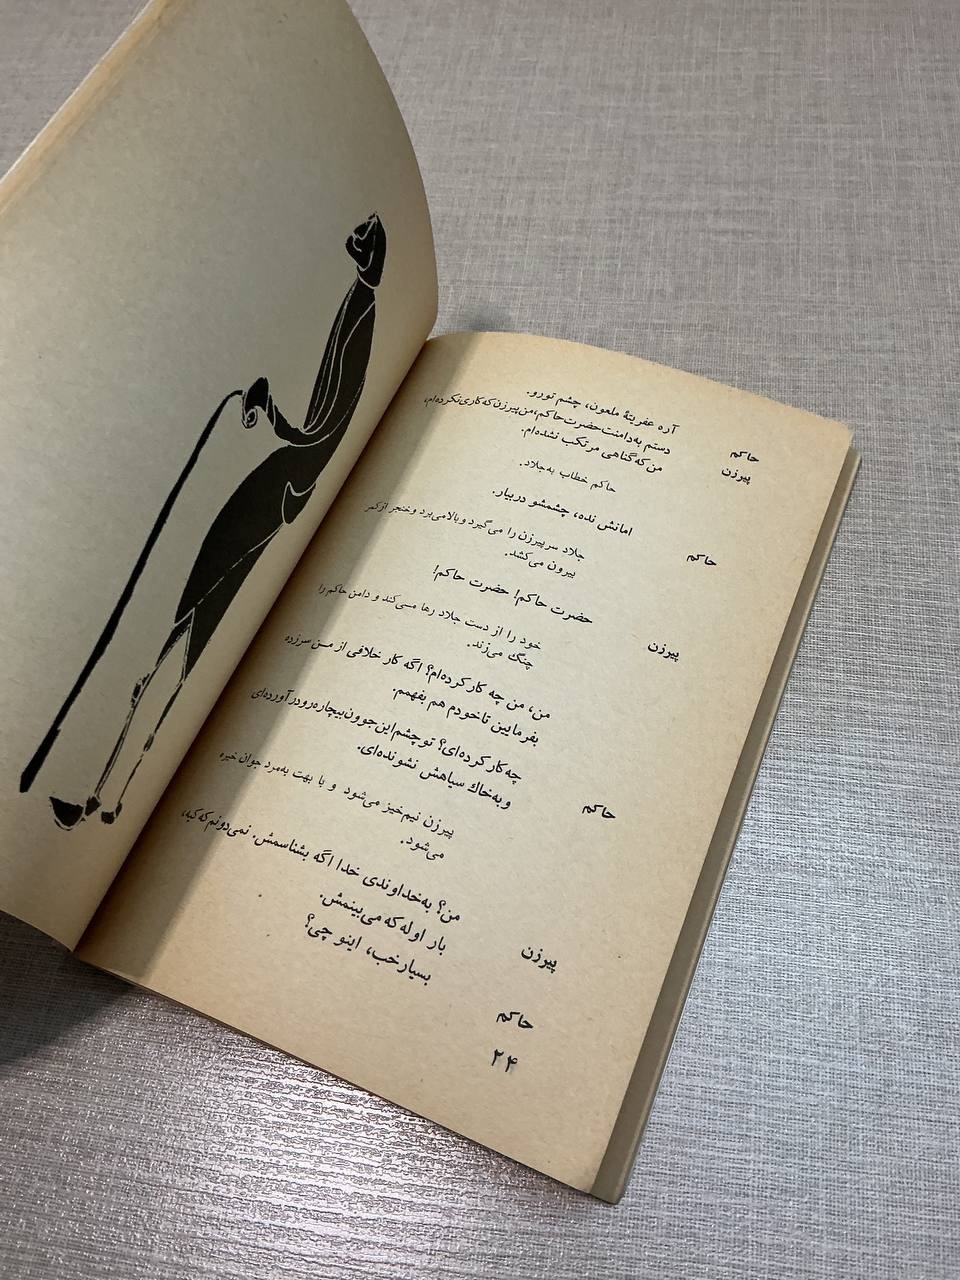 حاکم آره عفریتهٔ ملعون، چشم تورو.
پیرزن دستم به‌دامنت حضرت حاکم، من پیرزن که کاری نکرده‌ام،
من که گناهی مرتکب نشده‌ام.
حاکم خطاب به‌جلاد.
حاکم امانش نده، چشمشو دربیار.
جلاد سر پیرزن را می‌گیرد و بالا می‌برد و خنجر از کمر
بیرون می‌کشد.
پیرزن حضرت حاکم! حضرت حاکم!
خود را از دست جلاد رها می‌کند و دامن حاکم را
چنگ می‌زند.
من، من چه کار کرده‌ام؟ اگه کار خلافی از من سرزده
بفرمایین تا خودم هم بفهمم.
حاکم چه کار کرده‌ای؟ تو چشم این جوون بیچاره‌رو در آورده‌ای
و به‌خاك سیاهش نشونده‌ای.
پیرزن نیم‌خیز می‌شود و با بهت به‌مرد جوان خیره
می‌شود.
پیرزن من؟ به‌خداوندی خدا اگه بشناسمش. نمی‌دونم که کیه،
بار اوله که می‌بینمش.
حاکم بسیار خب، اینو چی؟
۲۴